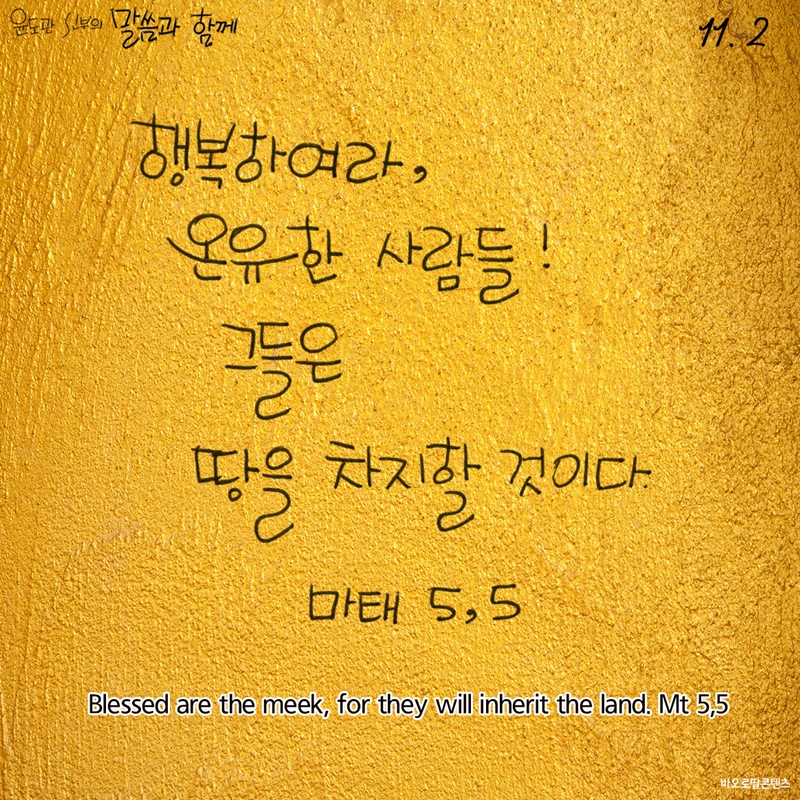 윤도관 신부의 말씀과 함께
11. 2
행복하여라,
온유한 사람들!
그들은
땅을 차지할 것이다.
마태 5,5
Blessed are the meek, for they will inherit the land. Mt 5,5
바오로딸콘텐츠